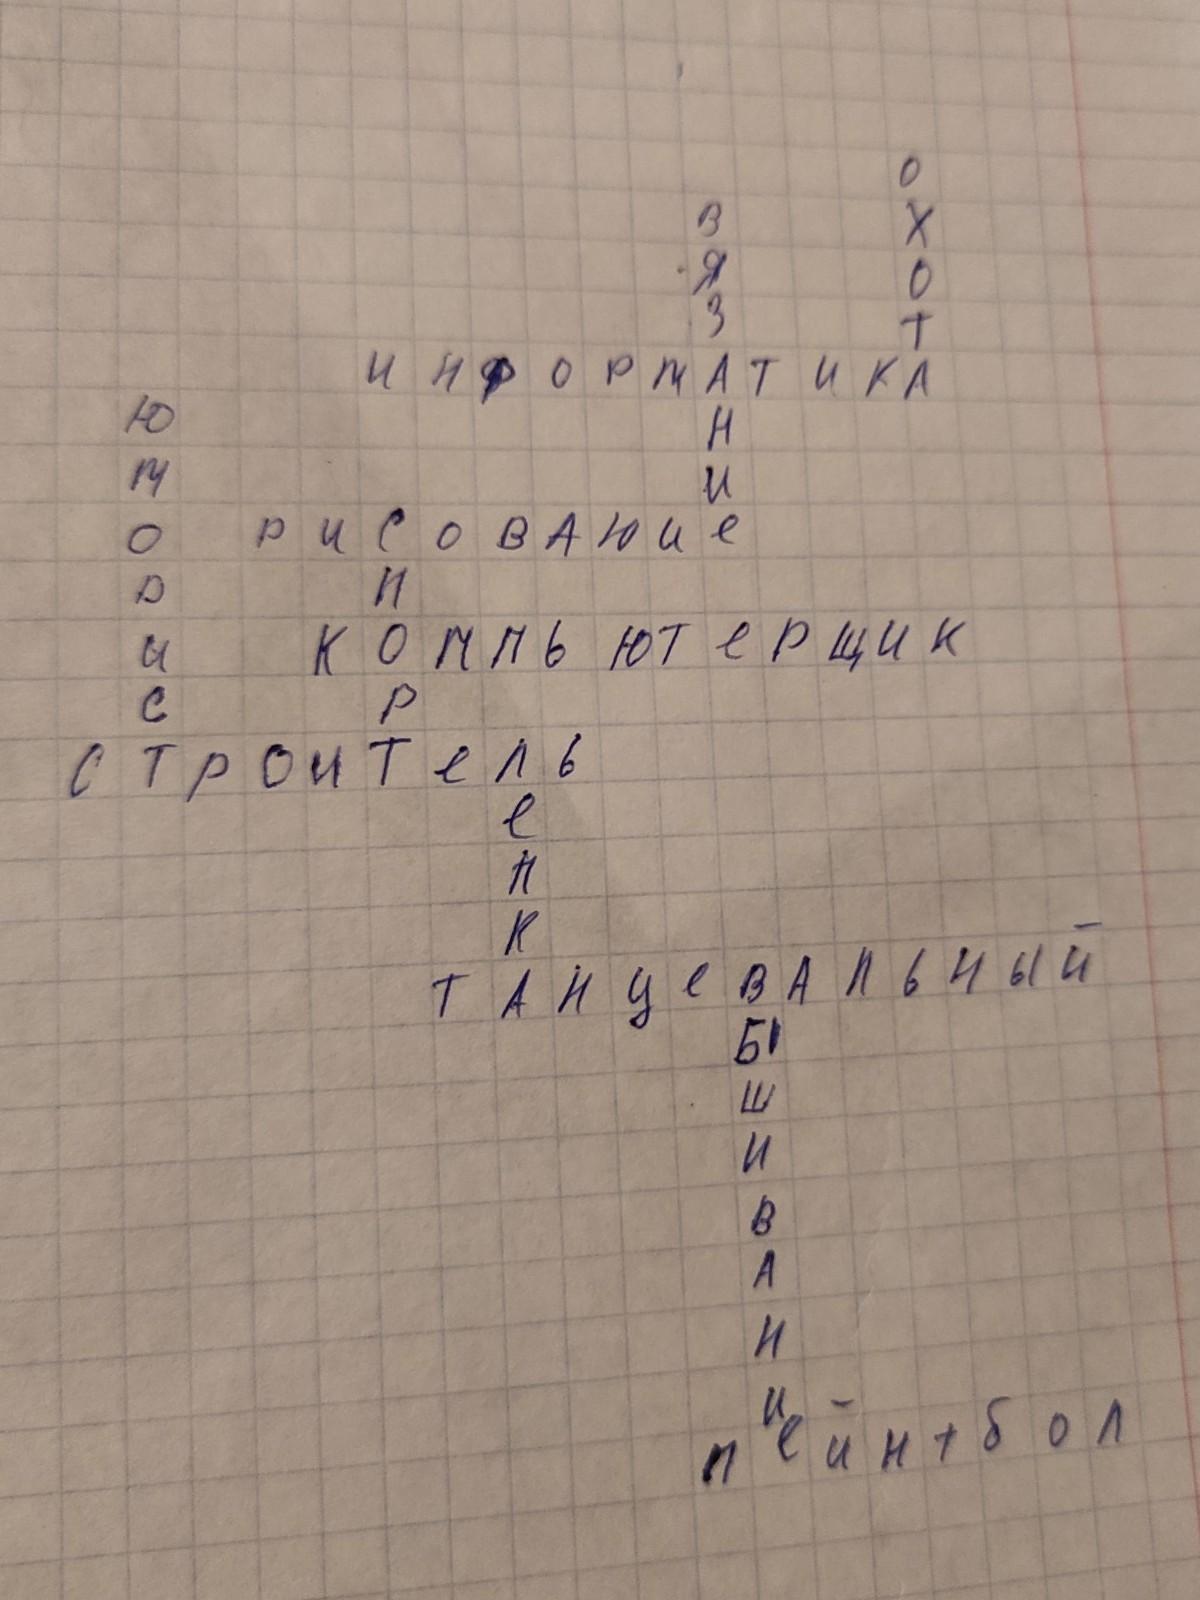 О
В Х
Я О
З Т
ИНФОРМАТИКА
Ю Н
М И
О РИСОВАЮИе
Д П
И КОМПЬЮТеРЩИК
С Р
СТРОИТеЛЬ
е
Н
К
ТАНЦеВАЛЬНЫЙ
Ы
Ш
И
В
А
Н
И
ПейНтбОЛ